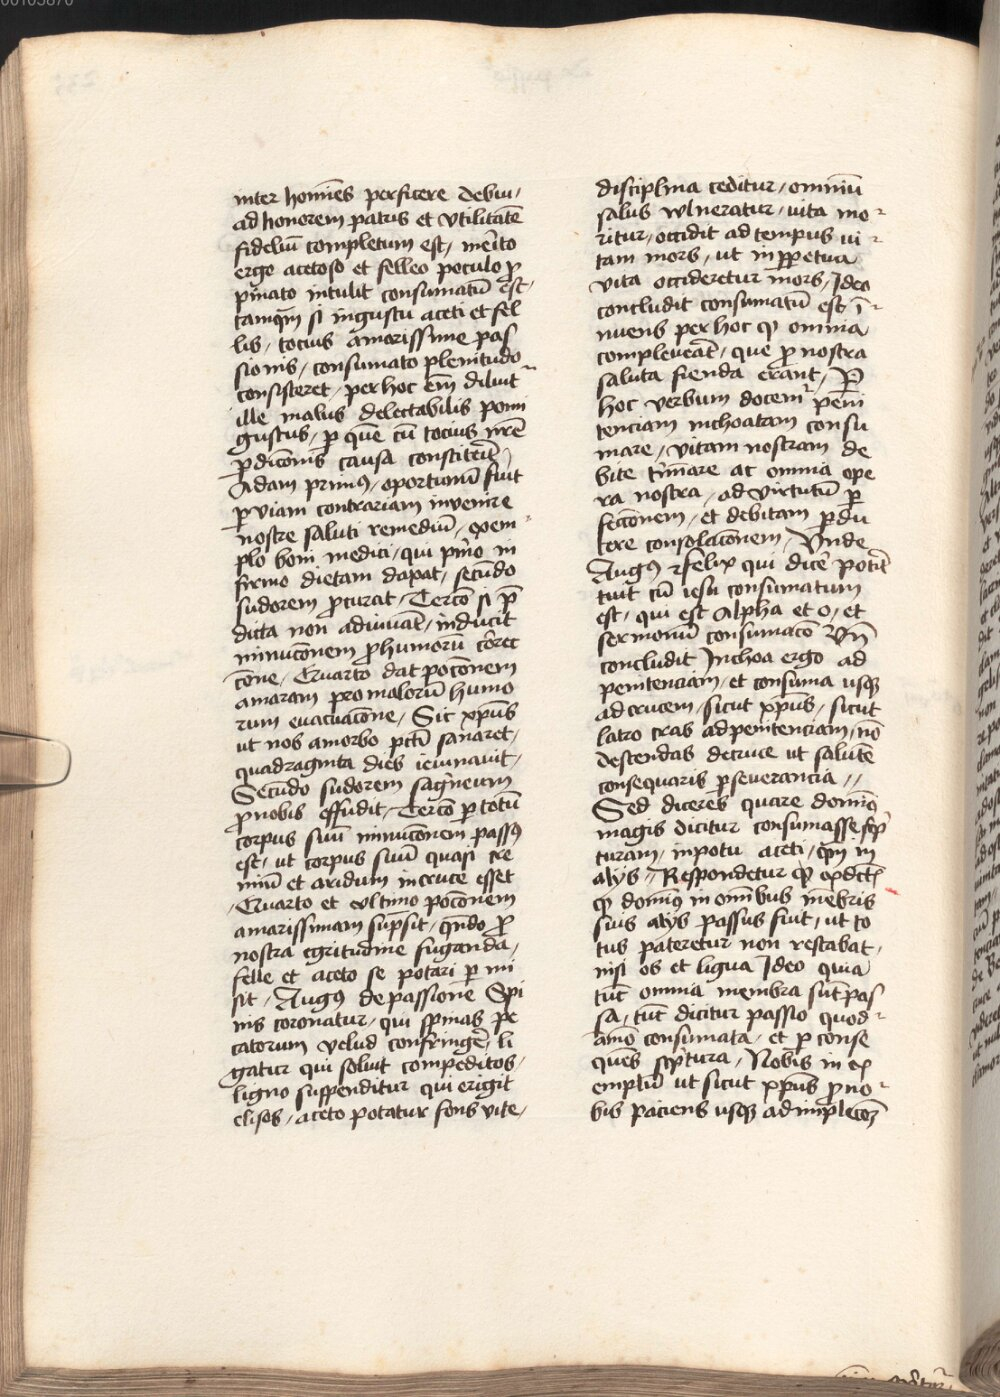 inter homīes perficere debui,
ad honorem patris et vtilitatē
fideliū completum est, merito
ergo acetoso et felleo poculo p̄
pinato intulit consumatū est,
tamqᷓm si in gustu aceti et fel
lis, tocius amarissime pas
sionis, consumato plenitudo
consisteret, per hoc em̄ diluit
ille malus delectabilis pomi
gustus, ꝑ quē cū tocius nr̄e
ꝑdicōnis causa
Adam primꝰ, oportunū fuit
ꝑ viam contrariam invenire
nostre saluti remediū, exem
plo boni medici, qui pͥmo in
firmo dietam dapat, secūdo
sudorem ꝓcurat, Tercō si p̄
dicta non adiuuāt, inducit
minucōnem ꝓ humorū cōrec
cōne, Quarto dat pocōnem
amaram pro malorū humo
rum euacuacōne, Sic xp̄us
ut nos a morbo pctī sanaret,
quadraginta dies ieiunauit,
Secūdo sudorem sagͥneum
ꝓ nobis effudit, Tercō ꝑ totū
corpus suū minucōnem passꝰ
est, ut corpus suū quasi cre
miū et aridum in cruce esset
Quarto et vltimo pocōnem
amarissimam sūpsit, qn̄do ꝓ
nostra egritudine fuganda,
felle et aceto se potari ꝑ mi
sit, Augꝰ de passione Spi
nis coronatur, qui spinas pe
catorum velud confringeͬ, li
gatur qui soluit compeditos,
ligno suspenditur qui erigit
elisos, aceto potatur fons vite,
disciplina ceditur, omniū
salus vulneratur, uita mo
ritur, occidit ad tempus ui
tam mors, ut in ꝑpetua
vita occideretur mors, Ideo
concludit consumatū est ī
nuens per hoc ꝙ omnia
compleueāt, que ꝓ nostra
saluta fienda erant, Per
hoc verbum docemͬ peni
tenciam inchoatam consu
mare, vitam nostram de
bite tͥminare ac omnia ope
ra nostra, ad virtutū ꝑ
feccōnem, et debitam ꝑdu
cere consolacōnem, Vnde
Augꝰ felix qui dicͤe potͥ
tuit cū iesu consumatum
est, qui est Alpha et o, et
sermonū consumacō Vn̄
concludit Inchoa ergo ad
penitenciam, et consuma usqꝫ
ad crucem, sicut xp̄us, sicut
latro cras ad penitenciam, nō
descendas de cruce ut salutē
consequaris ꝑseuerancia //
Sed diceres quare domīꝰ
magis dicitur consumasse scͥp
turam, in potu aceti, qᷓm in
alijs, Respondetur ꝙ
ꝙ domīꝰ in omībus mēbris
suis alijs passus fuit, ut to
tus pateretur non restabat,
nisi os et ligua Ideo quia
tūc omnia membra sūt pas
sa, tūc dicitur passio quod
amō consumata, et ꝑ conse
quēs scͥptura, Nobis in ex
emplū ut sicut xp̄us ꝓ no
bis paciens usqꝫ ad implecōꝫ